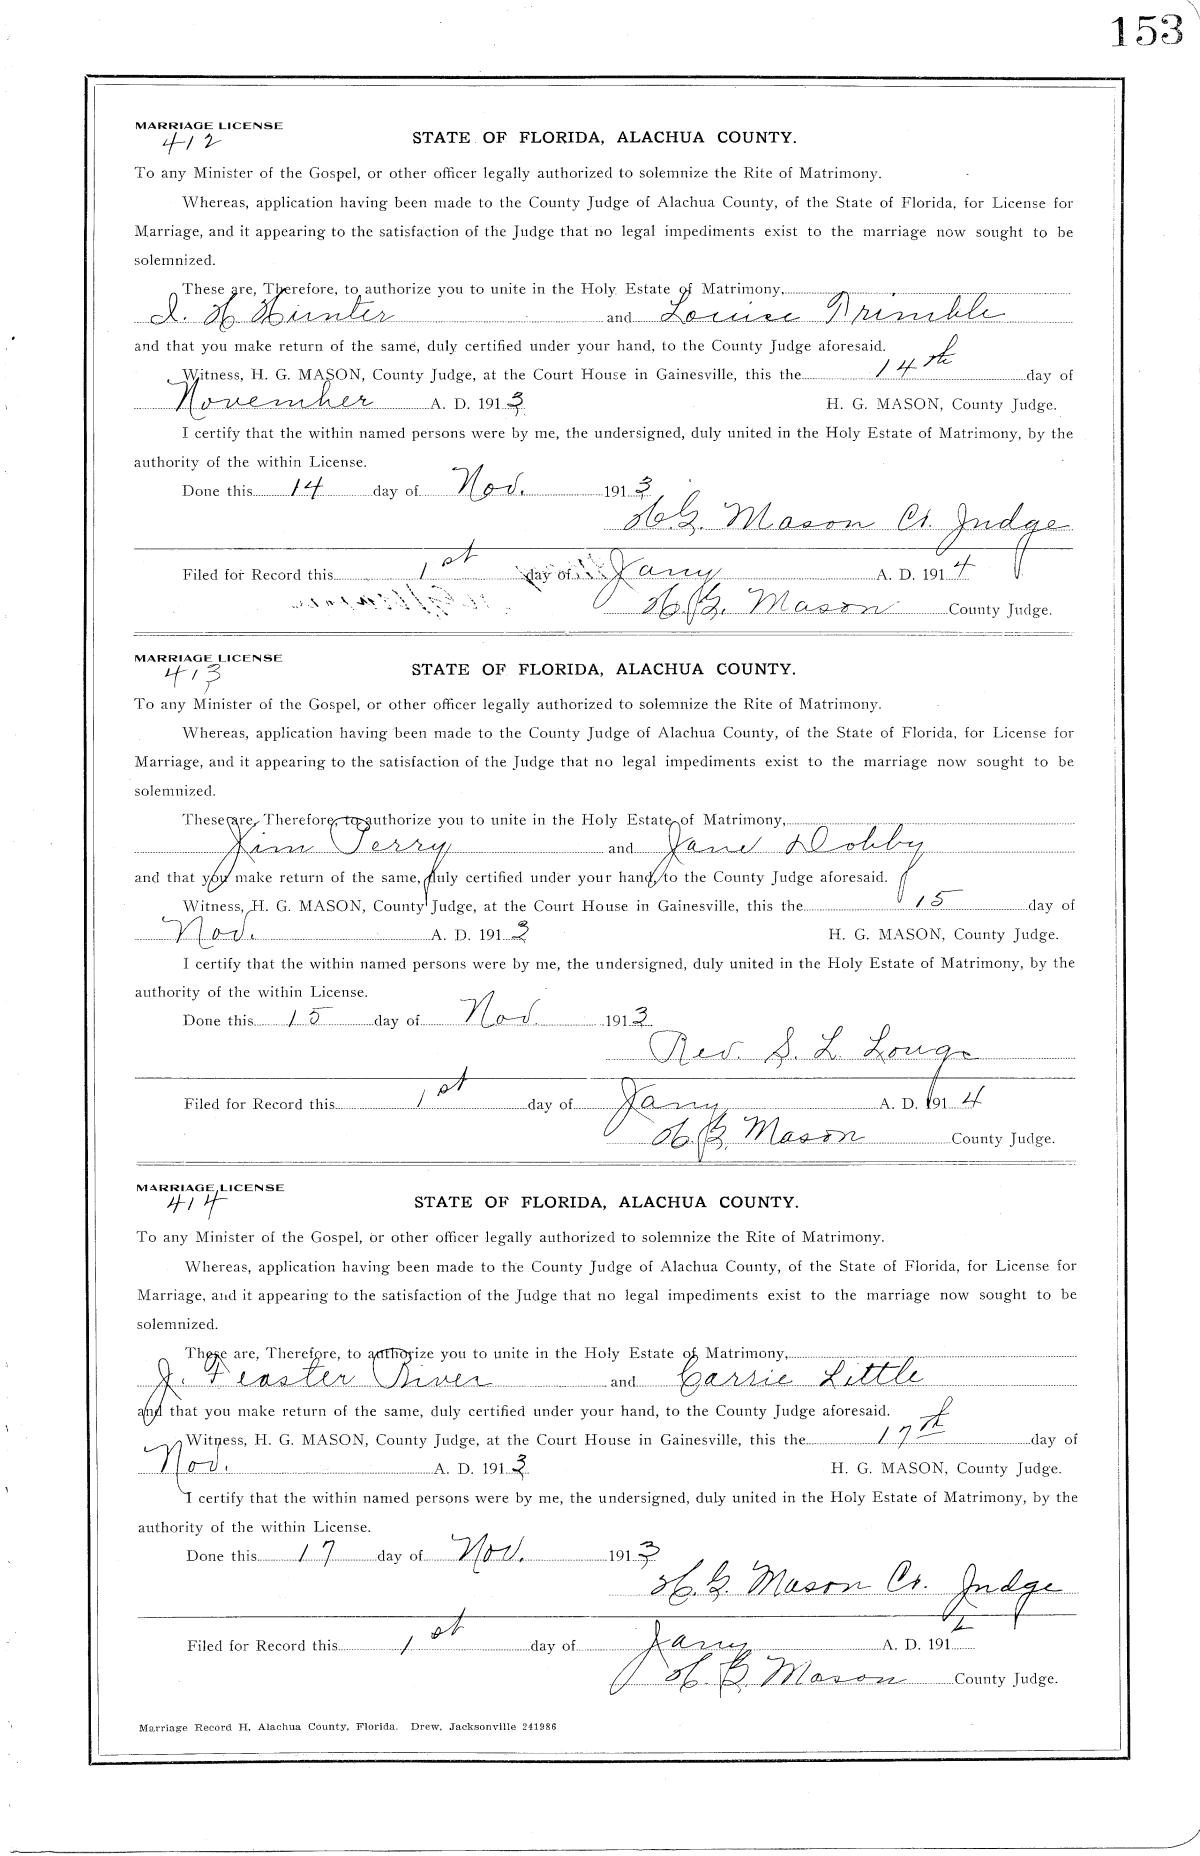 153
MARRIAGE LICENSE
412
STATE OF FLORIDA, ALACHUA COUNTY.
To any Minister of the Gospel, or other officer legally authorized to solemnize the Rite of Matrimony.
Whereas, application having been made to the County Judge of Alachua County, of the State of Florida, for License for
Marriage, and it appearing to the satisfaction of the Judge that no legal impediments exist to the marriage now sought to be
solemnized.
These are, Therefore, to authorize you to unite in the Holy Estate of Matrimony,
I. H Hunter and Louise Trimble
and that you make return of the same, duly certified under your hand, to the County Judge aforesaid.
Witness, H. G. MASON, County Judge, at the Court House in Gainesville, this the 14th day of
November A. D. 1913 H. G. MASON, County Judge.
I certify that the within named persons were by me, the undersigned, duly united in the Holy Estate of Matrimony, by the
authority of the within License.
Done this 14 day of Nov. 1913
H.G. Mason Co. Judge
Filed for Record this 1st day of Jany A. D. 1914
H. G. Mason County Judge.
MARRIAGE LICENSE
413
STATE OF FLORIDA, ALACHUA COUNTY.
To any Minister of the Gospel, or other officer legally authorized to solemnize the Rite of Matrimony.
Whereas, application having been made to the County Judge of Alachua County, of the State of Florida, for License for
Marriage, and it appearing to the satisfaction of the Judge that no legal impediments exist to the marriage now sought to be
solemnized.
These are, Therefore, to authorize you to unite in the Holy Estate of Matrimony,
Jim Perry and Jane Dobby
and that you make return of the same, duly certified under your hand, to the County Judge aforesaid.
Witness, H. G. MASON, County Judge, at the Court House in Gainesville, this the 15 day of
Nov. A. D. 1913 H. G. MASON, County Judge.
I certify that the within named persons were by me, the undersigned, duly united in the Holy Estate of Matrimony, by the
authority of the within License.
Done this 15 day of Nov. 1913
Rev. S. L. Longe
Filed for Record this 1st day of Jany A. D. 1914
H. G. Mason County Judge.
MARRIAGE LICENSE
414
STATE OF FLORIDA, ALACHUA COUNTY.
To any Minister of the Gospel, or other officer legally authorized to solemnize the Rite of Matrimony.
Whereas, application having been made to the County Judge of Alachua County, of the State of Florida, for License for
Marriage, and it appearing to the satisfaction of the Judge that no legal impediments exist to the marriage now sought to be
solemnized.
These are, Therefore, to authorize you to unite in the Holy Estate of Matrimony,
J. Feaster River and Carrie Little
and that you make return of the same, duly certified under your hand, to the County Judge aforesaid.
Witness, H. G. MASON, County Judge, at the Court House in Gainesville, this the 17th day of
Nov. A. D. 1913 H. G. MASON, County Judge.
I certify that the within named persons were by me, the undersigned, duly united in the Holy Estate of Matrimony, by the
authority of the within License.
Done this 17 day of Nov. 1913
H. G. Mason Co. Judge
Filed for Record this 1st day of Jany A. D. 1914
H. G. Mason County Judge.
Marriage Record H, Alachua County, Florida. Drew, Jacksonville 241986